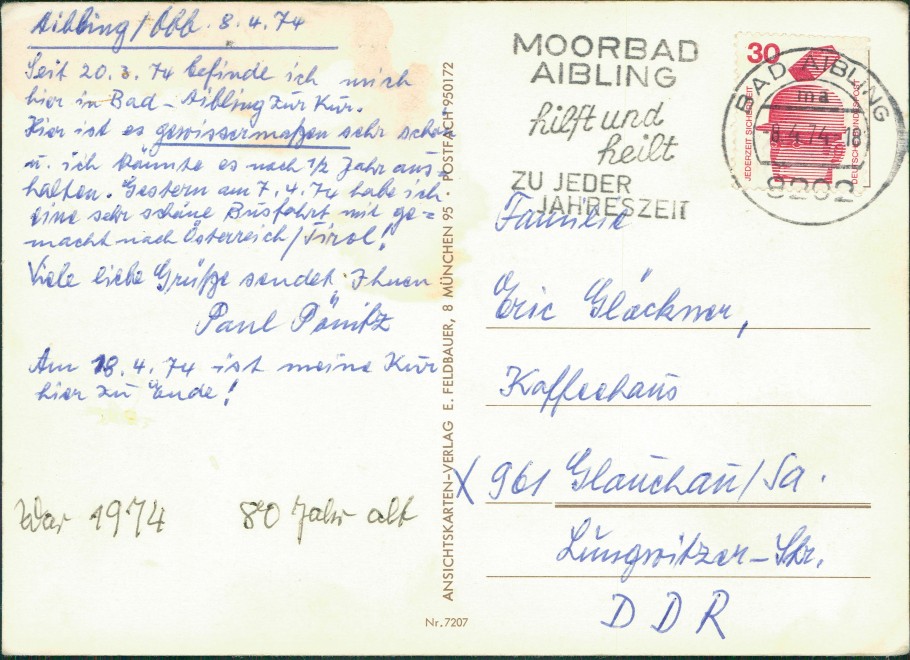 Aibling/Obb. 8.4.74
Seit 20.3.74 befinde ich mich
hier in Bad-Aibling zur Kur.
Hier ist es gewissermaßen sehr schö
u. ich könnte es noch 1/2 Jahr aus
halten. Gestern am 7.4.74 habe ich
eine sehr schöne Busfahrt mit ge=
macht nach Österreich/Tirol!
Viele liebe Grüße sendet Ihnen
Paul Pönitz
Am 18.4.74 ist meine Kur
hier zu Ende!
War 1974 80 Jahr alt
ANSICHTSKARTEN-VERLAG E. FELDBAUER, 8 MÜNCHEN 95 · POSTFACH 950172
Nr. 7207
MOORBAD
AIBLING
hilft und
heilt
ZU JEDER
JAHRESZEIT
30
JEDERZEIT SICHERHEIT
DEUTSCHE BUNDESPOST
BAD AIBLING
ma
8.4.74-18
8202
Familie
Eric Glöckner,
Kaffeehaus
X 961 Glauchau/Sa.
Lungwitzer-Str.
DDR